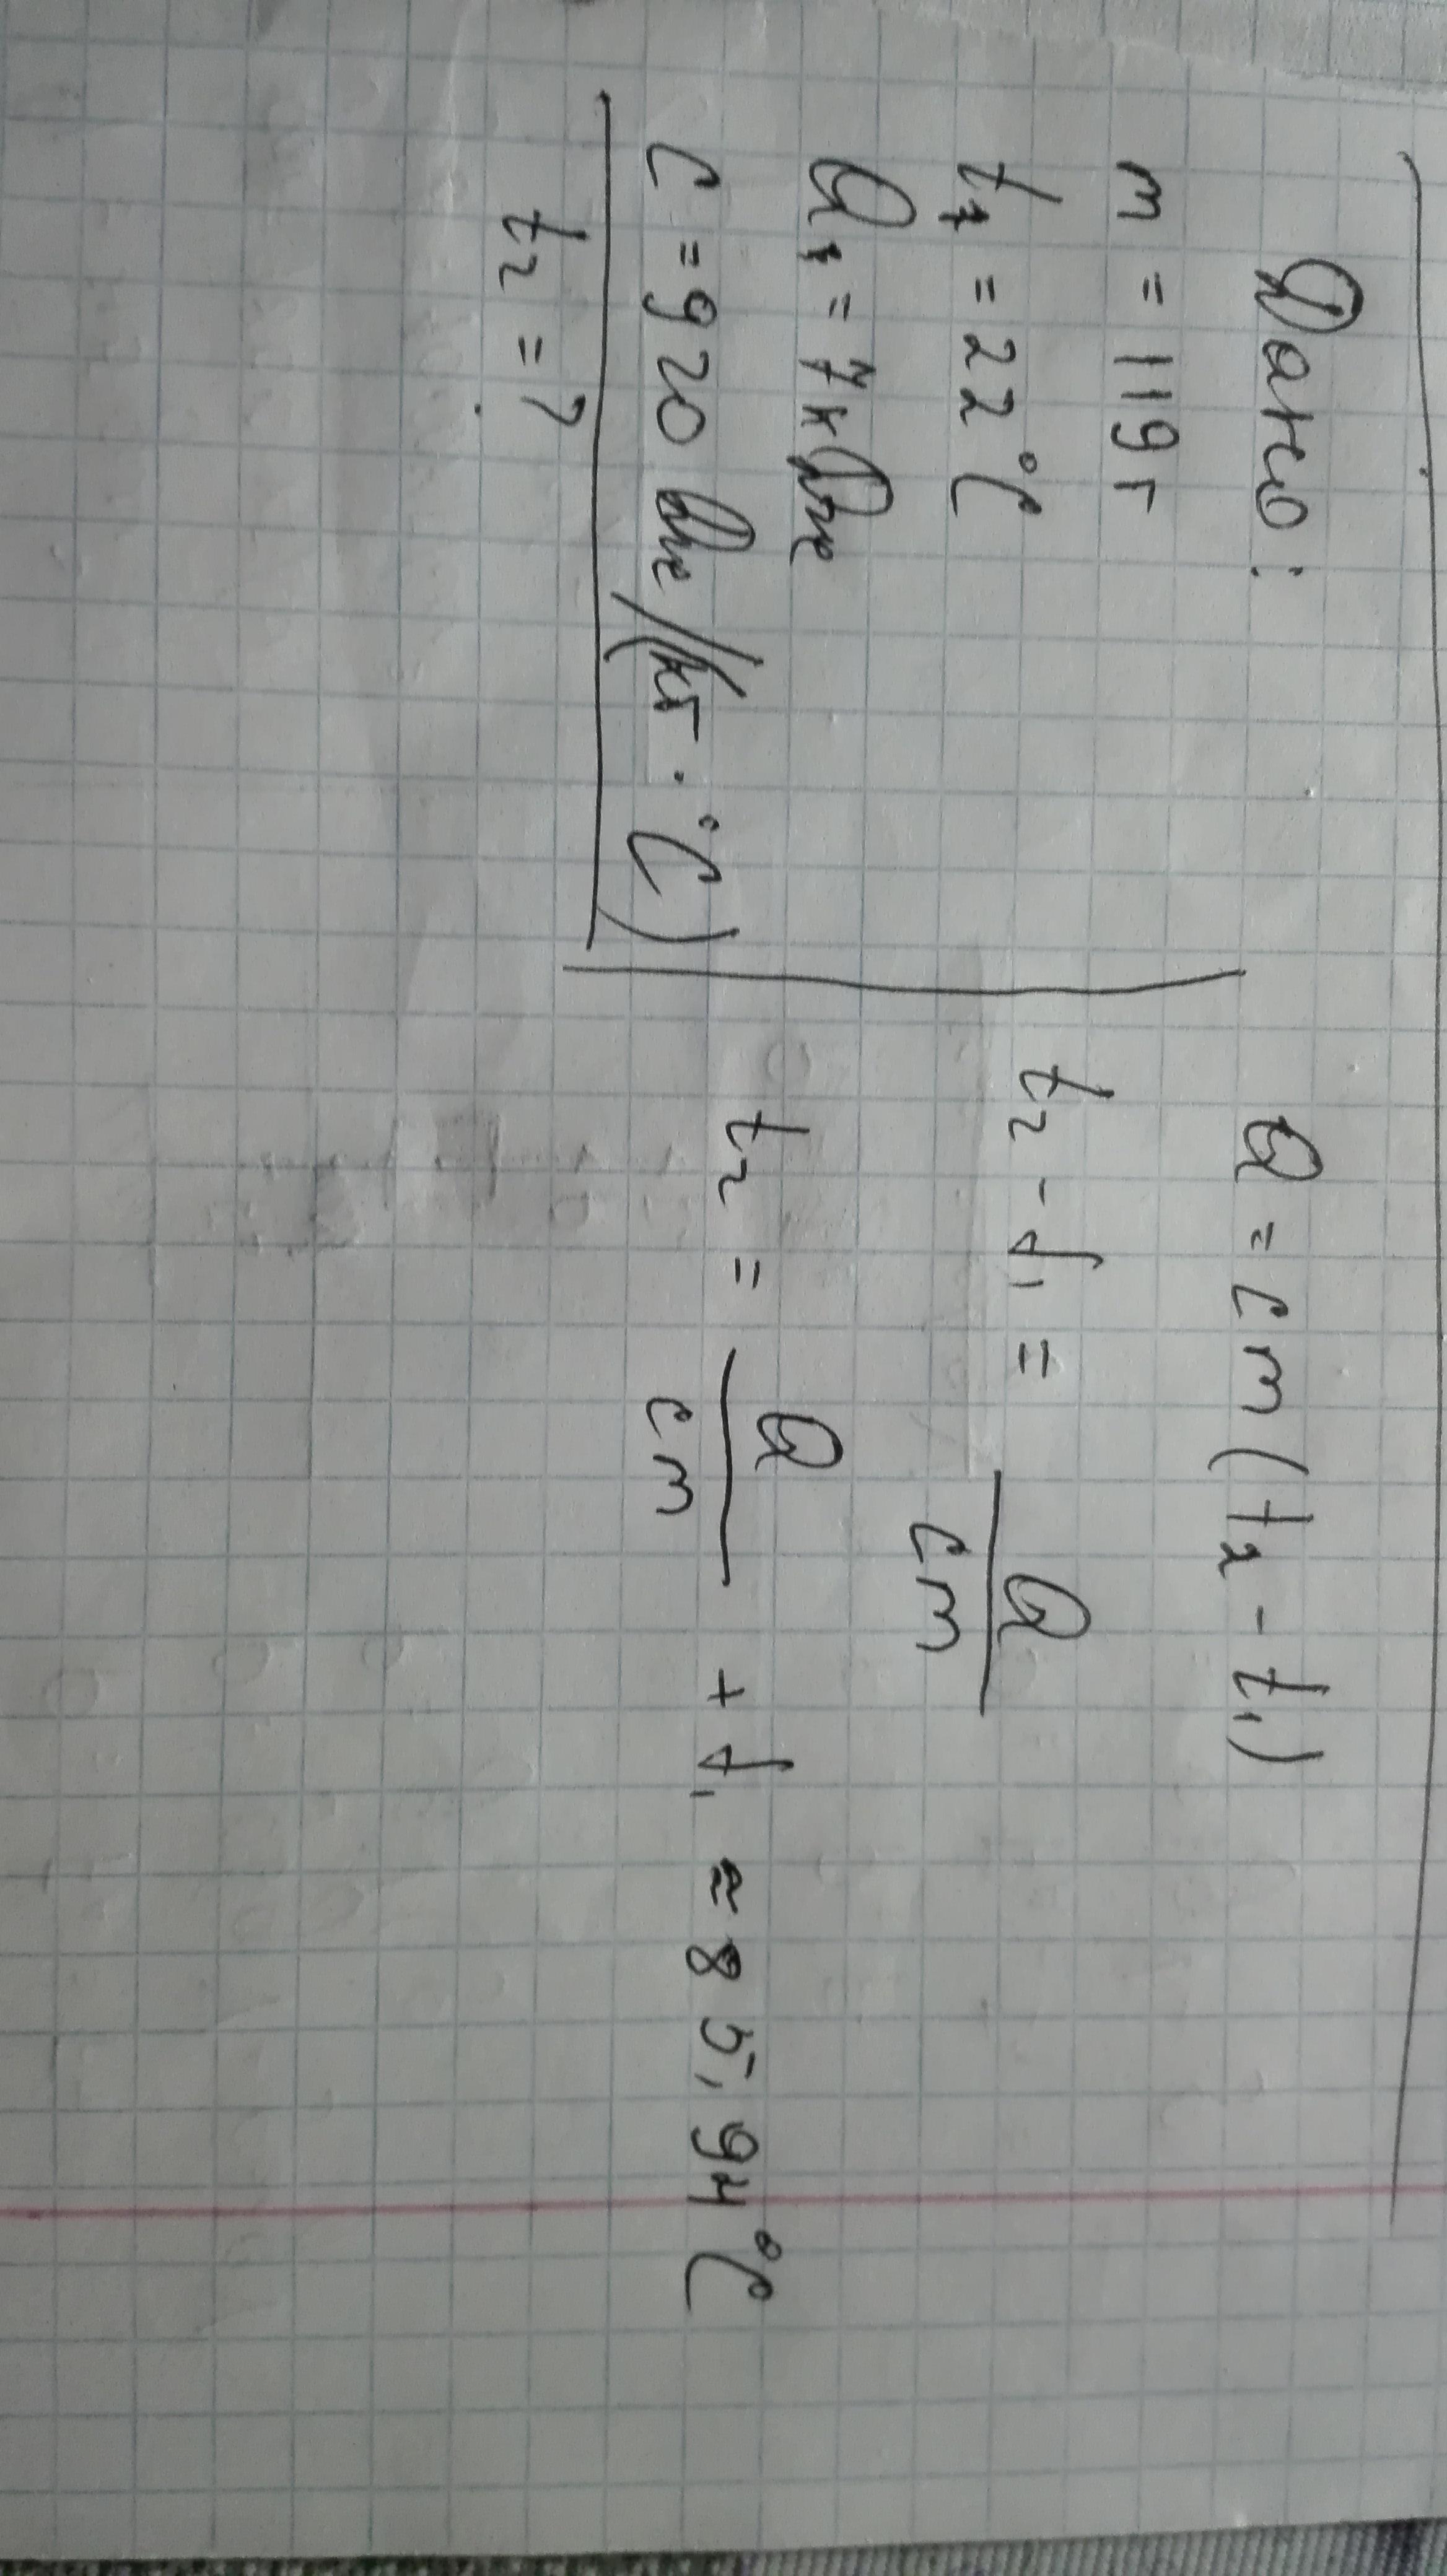 Дано:
m = 119 г
t₁ = 22 °C
Q₁ = 7 кДж
C = 920 Дж/(кг · °C)
t₂ = ?
Q = cm(t₂ - t₁)
t₂ - t₁ = Q / cm
t₂ = Q / cm + t₁ ≈ 85,94 °C